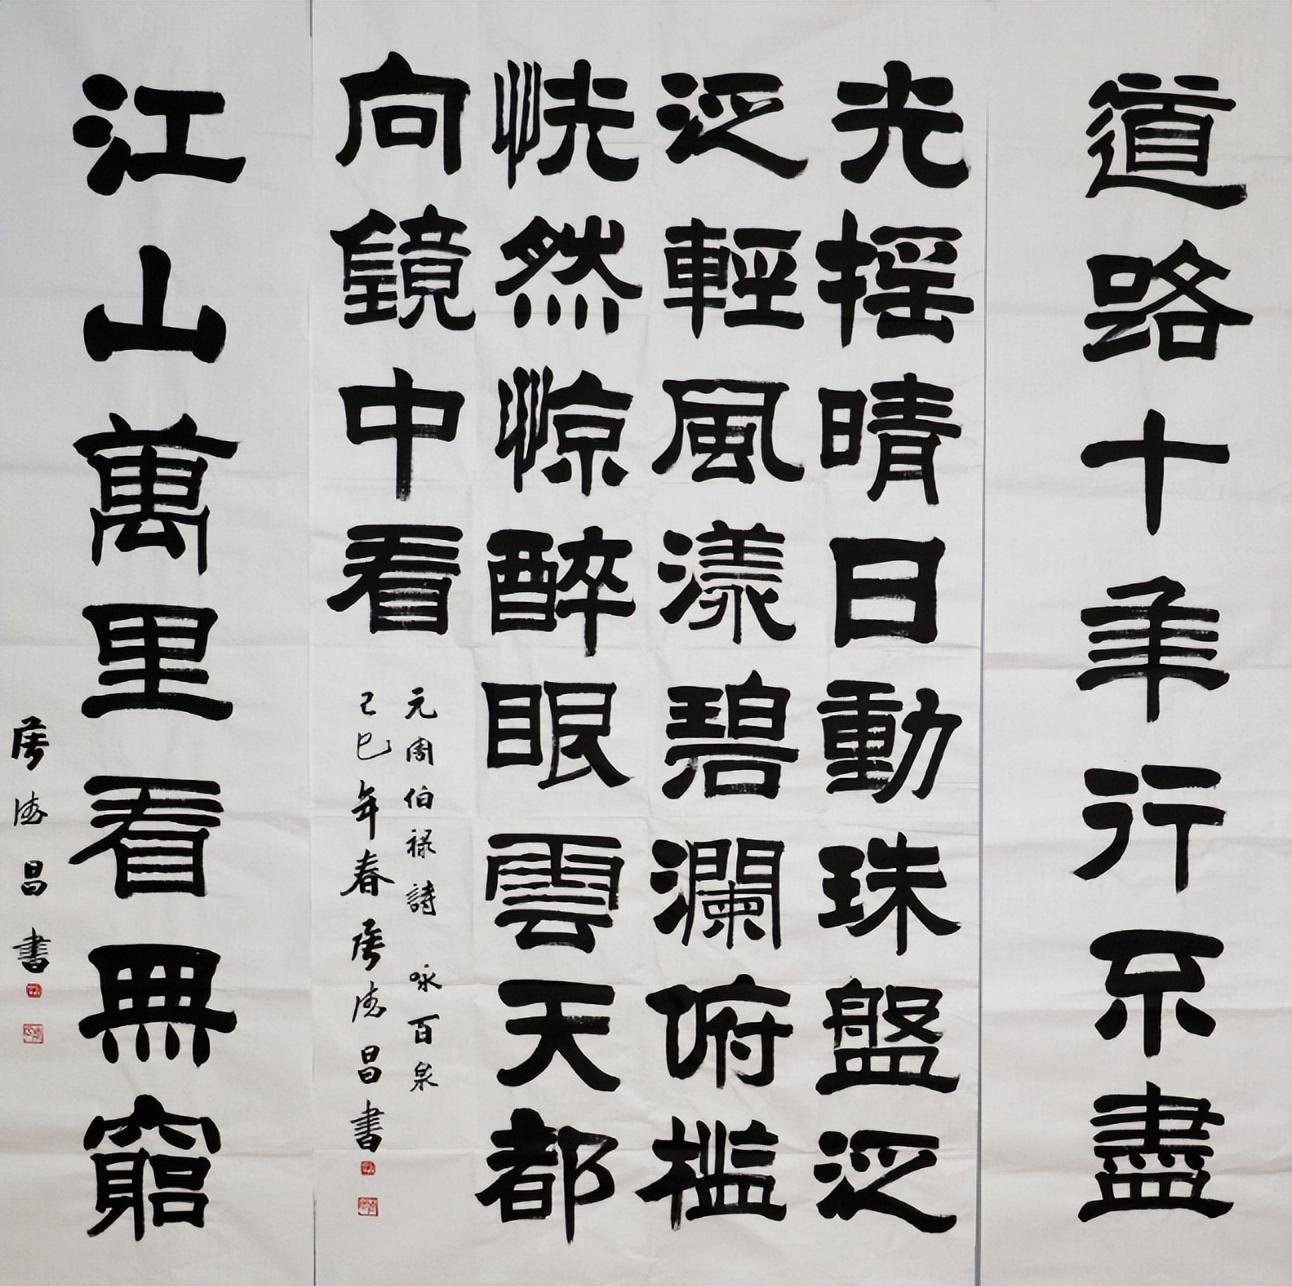 道路十年行不盡
光摇晴日動珠盤泛
泛輕風漾碧瀾俯槛
恍然惊醉眼雲天都
向鏡中看
元周伯禄詩 咏百泉
己巳年春侯德昌書
江山萬里看無窮
侯德昌書